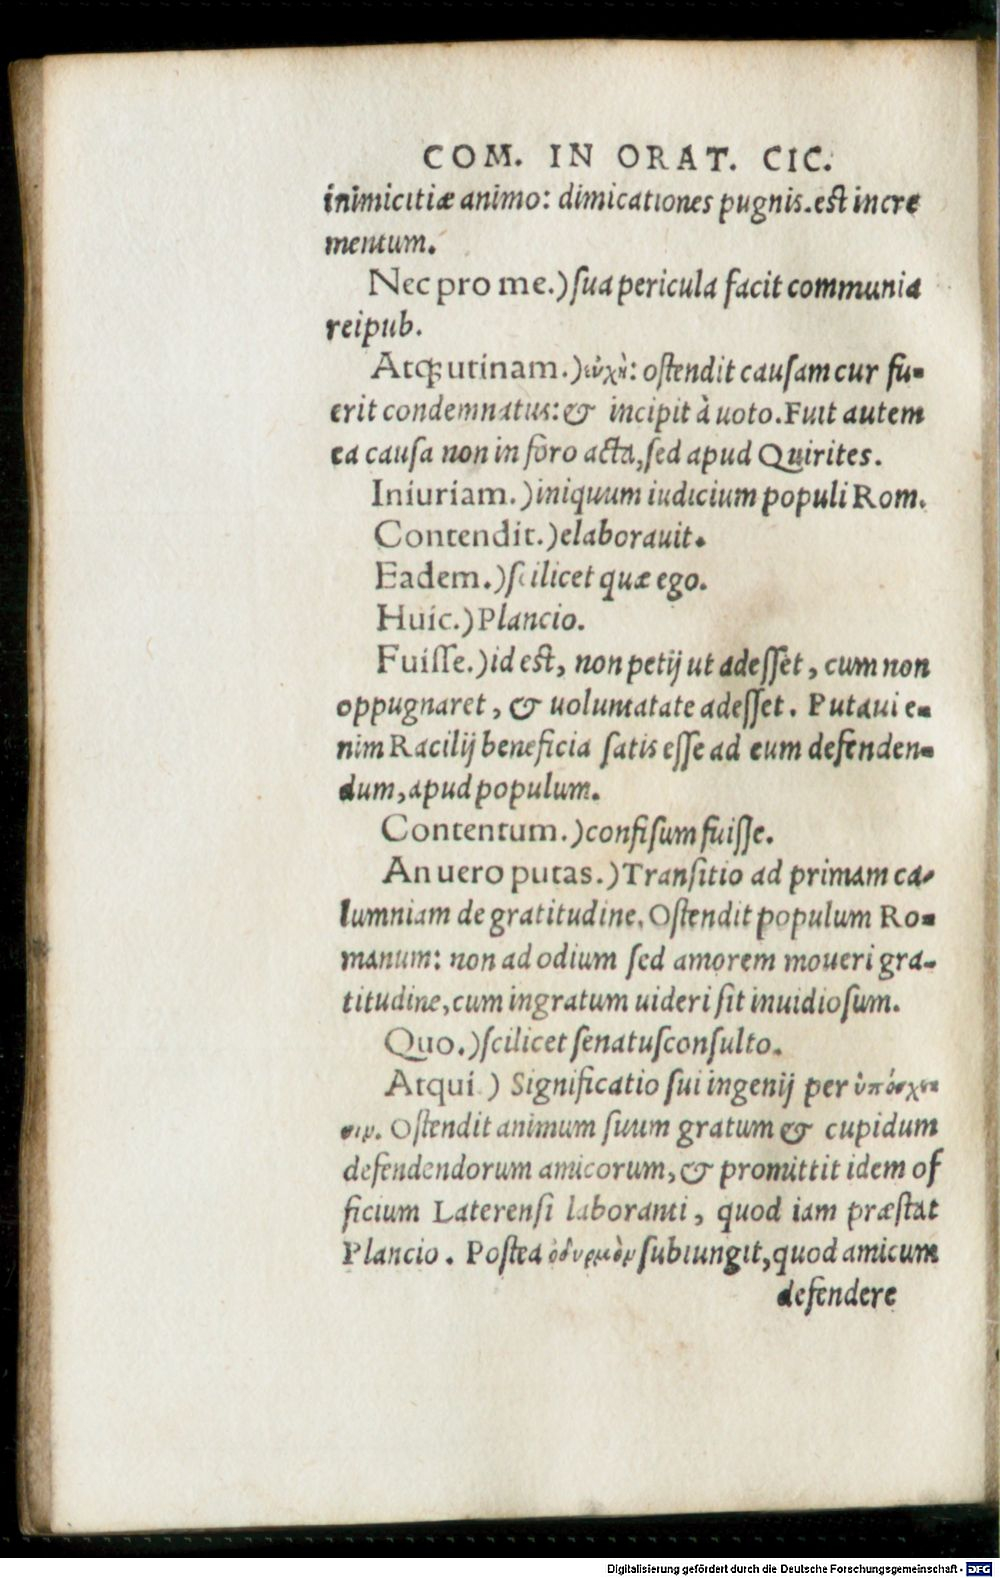 COM. IN ORAT. CIC.
inimicitiæ animo: dimicationes pugnis. est incre
mentum.
Nec pro me.) ſua pericula facit communia
reipub.
Atqꝫ utinam.) εὐχὴ: oſtendit cauſam cur fu-
erit condemnatus: & incipit à uoto. Fuit autem
ea cauſa non in foro acta, ſed apud Quirites.
Iniuriam.) iniquum iudicium populi Rom.
Contendit.) elaborauit.
Eadem.) ſcilicet quæ ego.
Huic.) Plancio.
Fuiſſe.) id est, non petij ut adeſſet, cum non
oppugnaret, & uoluntate adeſſet. Putaui e-
nim Racilij beneficia ſatis eſſe ad eum defenden-
dum, apud populum.
Contentum.) confiſum fuiſſe.
An uero putas.) Tranſitio ad primam ca-
lumniam de gratitudine. Oſtendit populum Ro-
manum: non ad odium ſed amorem moueri gra-
titudine, cum ingratum uideri ſit inuidioſum.
Quo.) ſcilicet ſenatuſconſulto.
Atqui.) Significatio ſui ingenij per ὑπόσχε-
σιν. Oſtendit animum ſuum gratum & cupidum
defendendorum amicorum, & promittit idem of
ficium Laterenſi laboranti, quod iam præſtat
Plancio. Poſtea ὀδυρμὸν ſubiungit, quod amicum
defendere
Digitalisierung gefördert durch die Deutsche Forschungsgemeinschaft - DFG